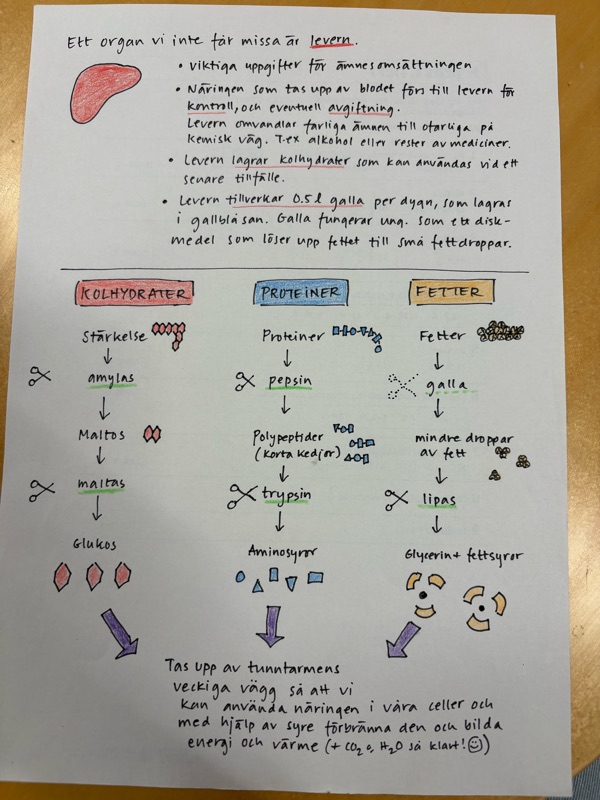 Ett organ vi inte får missa är levern.
• viktiga uppgifter för ämnesomsättningen
• Näringen som tas upp av blodet förs till levern för
kontroll, och eventuell avgiftning.
Levern omvandlar farliga ämnen till ofarliga på
kemisk väg. T.ex alkohol eller rester av mediciner.
• Levern lagrar kolhydrater som kan användas vid ett
senare tillfälle.
• Levern tillverkar 0.5 l galla per dygn, som lagras
i gallblåsan. Galla fungerar ung. som ett disk-
medel som löser upp fettet till små fettdroppar.
KOLHYDRATER PROTEINER FETTER
Stärkelse Proteiner Fetter
amylas pepsin galla
Maltos Polypeptider mindre droppar
(korta kedjor) av fett
maltas trypsin lipas
Glukos Aminosyror Glycerin + fettsyror
Tas upp av tunntarmens
veckiga vägg så att vi
kan använda näringen i våra celler och
med hjälp av syre förbränna den och bilda
energi och värme (+ CO₂ o. H₂O så klart! ☺)